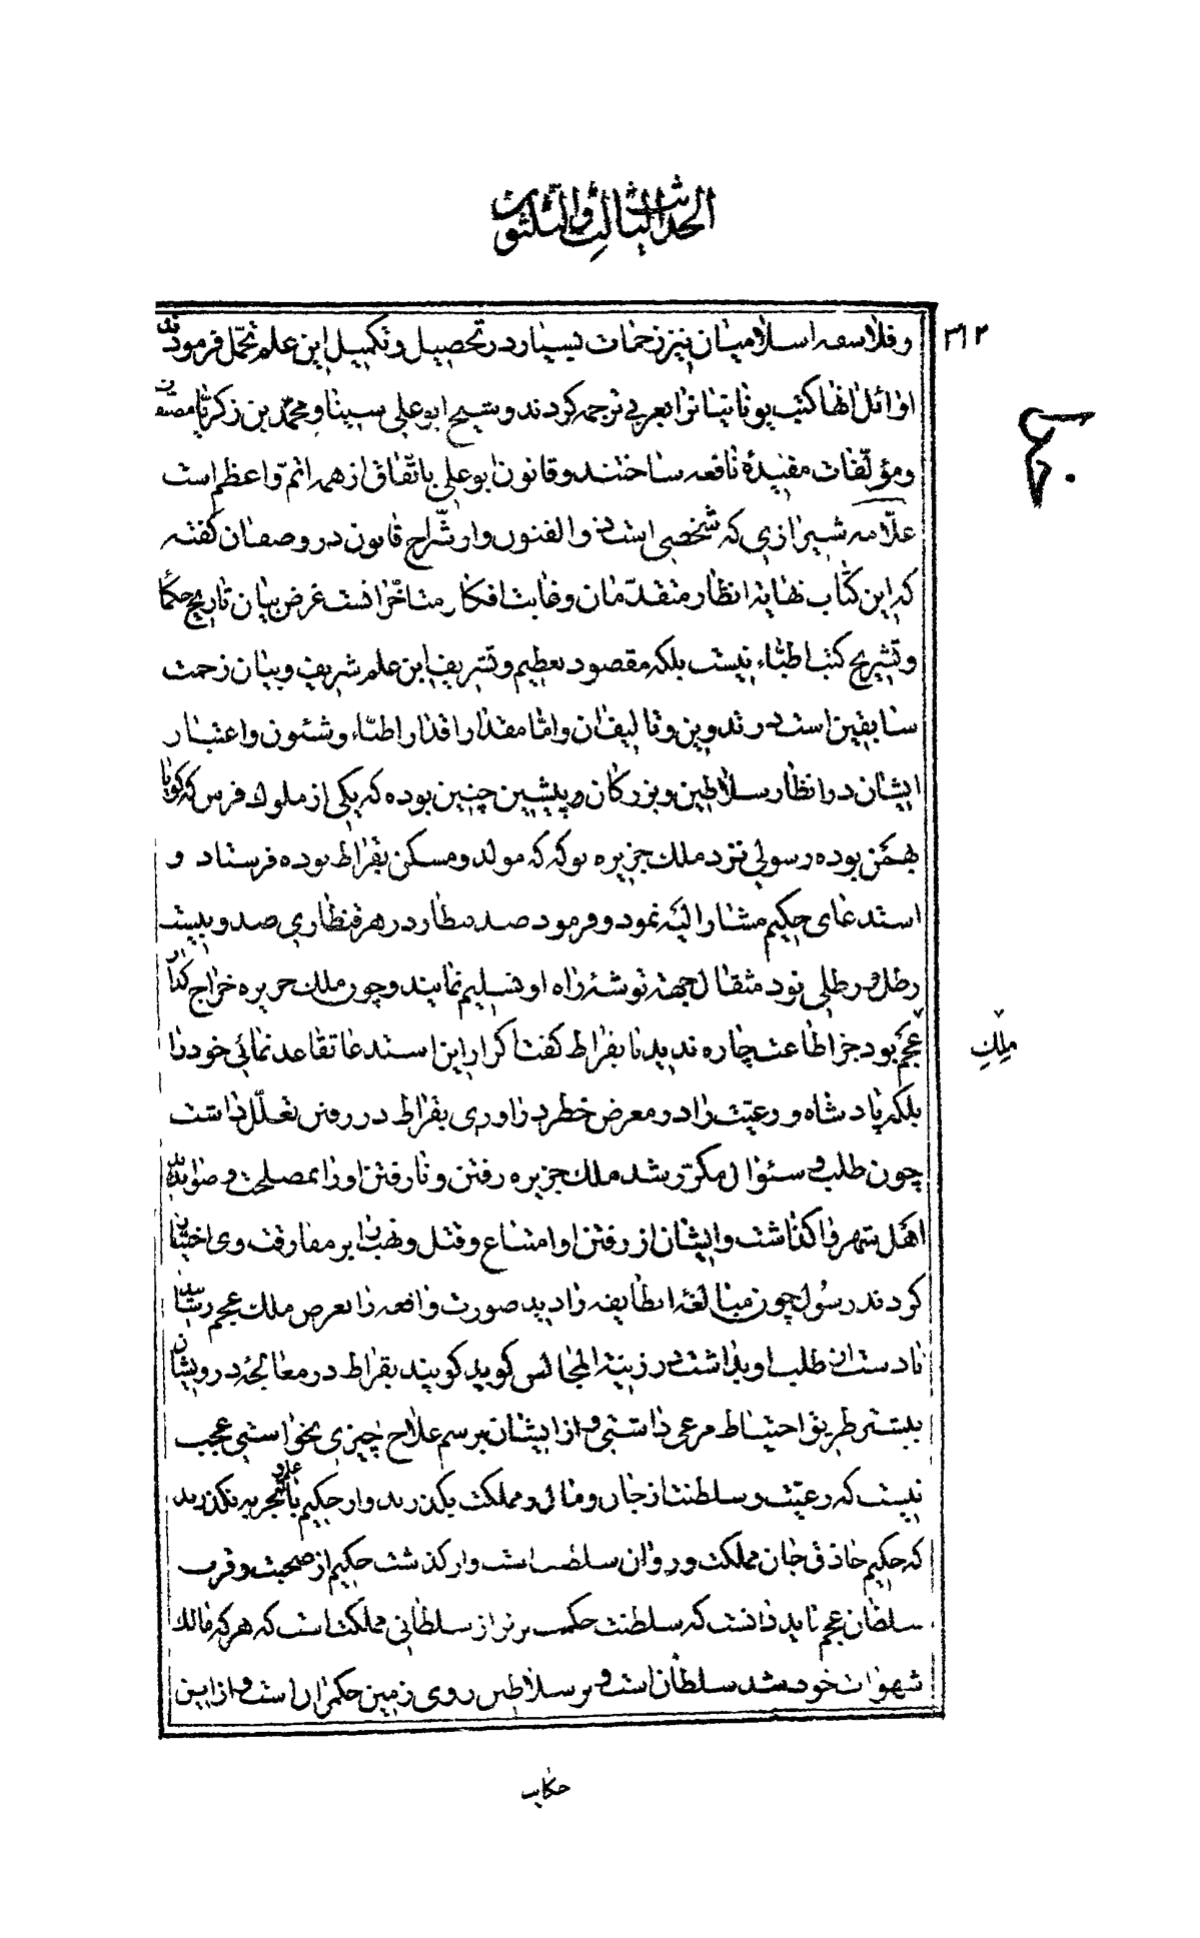 الحدیث الثالث والثلثون
۳۱۲
وفلاسفه اسلامیان نیز زحمات بسیار در تحصیل و تکمیل این علم تحمّل فرمودند
اوائل انها کتب یونانیانرا بعربی ترجمه کردند و شیخ ابو علی سینا و محمّد بن زکریّا مصنفات
ومؤلّفات مفیدهٔ نافعه ساختند و قانون ابو علی باتّفاق از همه اتمّ و اعظم است
علّامه شیرازی که شخصی است ذو الفنون و از شرّاح قانون در وصف ان گفته
که این کتاب نهایة انظار متقدّمان و غایت افکار متاخّرانست غرض بیان تاریخ حکما
و تشریح کتب اطبّاء نیست بلکه مقصود تعظیم و تشریف این علم شریف و بیان زحمت
سابقین است در تدوین و تالیف ان و امّا مقدار اقدار اطبّاء و شئون و اعتبار
ایشان در انظار سلاطین و بزرکان پیشین چنین بوده که یکی از ملوک فرس که کویا
بهمن بوده رسولی نزد ملک جزیره که مولد و مسکن بقراط بوده فرستاد و
استدعای حکیم مشار الیه نمود و فرمود صد قنطار در هر قنطاری صد و بیست
رطل و رطلی نود مثقال جهة توشهٔ راه او تسلیم نمایند و چون ملک جزیره خراج کذار
عجم بود جز اطاعت چاره ندید با بقراط کفت اکر از این استدعا تقاعد نمائی خود را
ملک
بلکه پادشاه و رعیّت را در معرض خطر در اوری بقراط در رفتن تعلّل داشت
چون طلب و سئوال مکرّر شد ملک جزیره رفتن و نارفتن او را بمصلحت و صوابدید
اهل شهر واکذاشت و ایشان از رفتن او امتناع و قتل و نهب را بر مفارقت وی اختیار
کردند رسول چون مبالغهٔ انطایفه را دید صورت واقعه را بعرض ملک عجم رسانید
تا دست از طلب او بداشت در زینة المجالس کوید کویند بقراط در معالجهٔ درویشان
بیشتر طریق احتیاط مرعی داشتی و از ایشان برسم علاج چیزی نخواستی عجب
نیست که رعیّت و سلطنت از جان و مال و مملکت بکذرند و از حکیم با علم و تجربه نکذرند
که حکیم حاذق جان مملکت و روان سلطنت است و از کذشت حکیم از صحبت و قرب
سلطان عجم باید دانست که سلطنت حکمت برتر از سلطانی مملکت است که هر که مالک
شهوات خود شد سلطان است و بر سلاطین روی زمین حکمران است و از این
حکایت